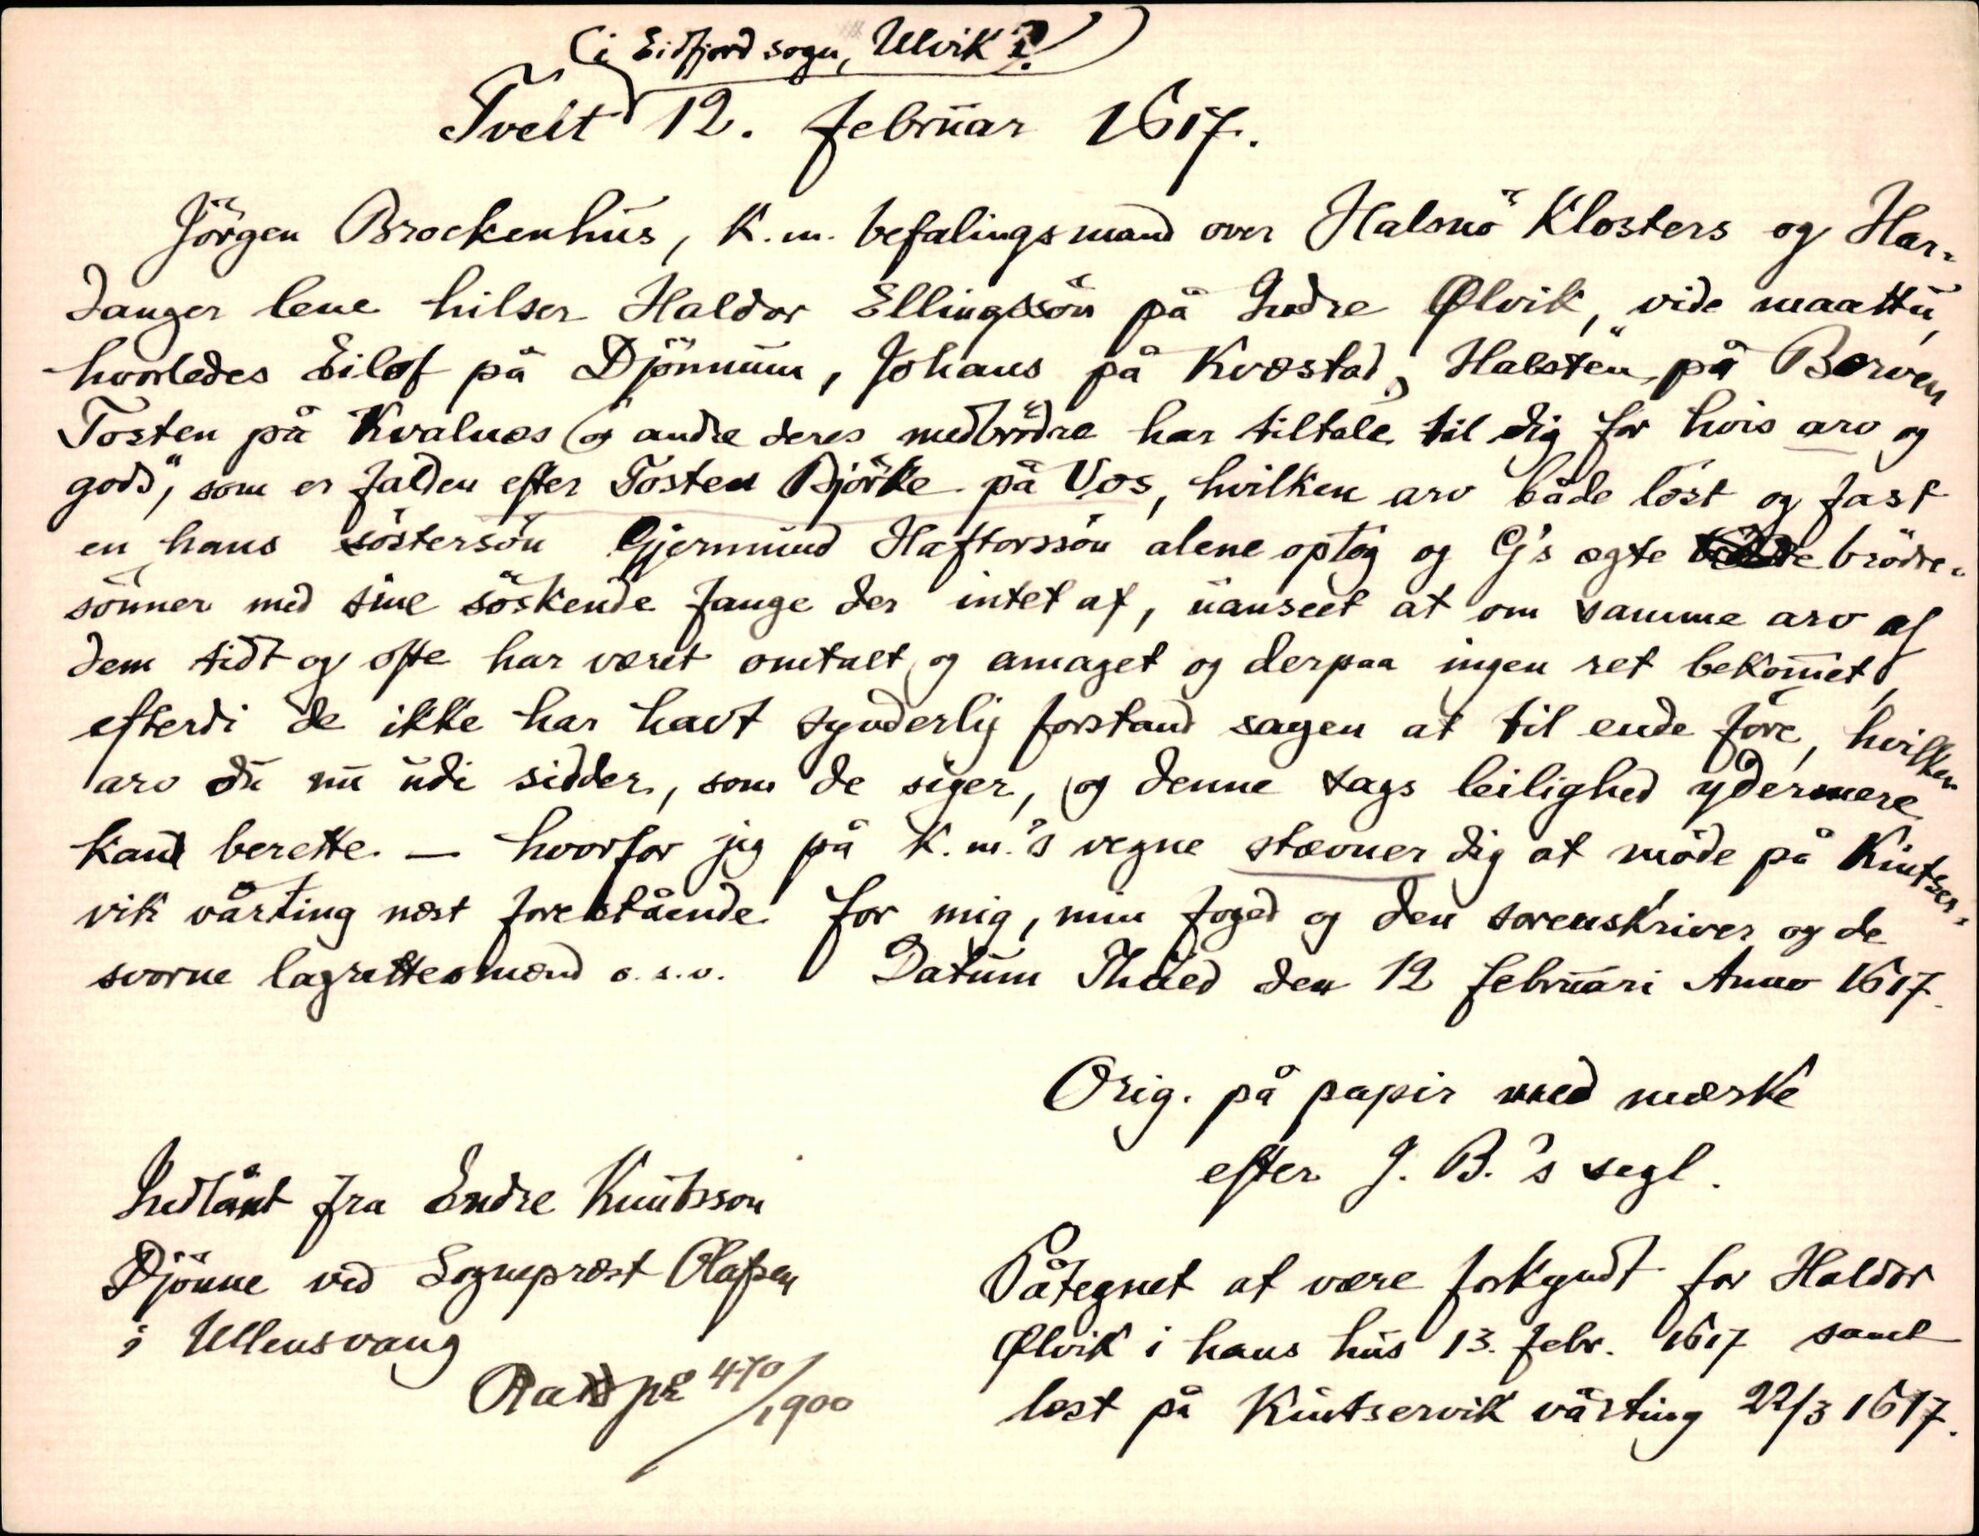 (i Eidfjord sogn, Ulvik?)
Tveit 12. februar 1617.
Jörgen Brockenhus, K.m. befalingsmand over Halsnö Klosters og Har-
danger lene hilser Haldor Ellingssön på Indre Ølvik, vide maattu,
hvorledes Eilof på Djönnum, Johans på Kvæstad, Halsten på Berven
Tosten på Kvalnes "og andre deres medbrödre har tiltale til dig for hvis arv og
gods", som er falden efter Tosten Björke på Vos, hvilken arv både löst og fast
en hans söstersön Gjermund Haftorssön alene optog og G's ægte brödre-
sönner med sine söskende fange der intet af, uanseet at om samme arv af
dem tidt og ofte har været omtalt og amaget og derpaa ingen ret bekom̅et,
efterdi de ikke har havt synderlig forstand sagen at til ende före, hvilken
arv du nu udi sidder, som de siger, og denne sags leilighed ydermere
kand berette. — hvorfor jeg på K.m.'s vegne stævner dig at möde på Kintser-
vik vårting næst forestående for mig, min foged og den sorenskriver og de
svorne lagrettesmænd o.s.v. Datum Thued den 12 februari Anno 1617.
Orig. på papir med mærke
efter J. B.'s segl.
Indlånt fra Endre Knutsson
Djönne ved Sognepræst Olafsen
i Ullensvang
Påtegnet at være forkyndt for Haldor
Ølvik i hans hus 13. febr. 1617 samt
læst på Kintservik vårting 22/3 1617.
470/1900